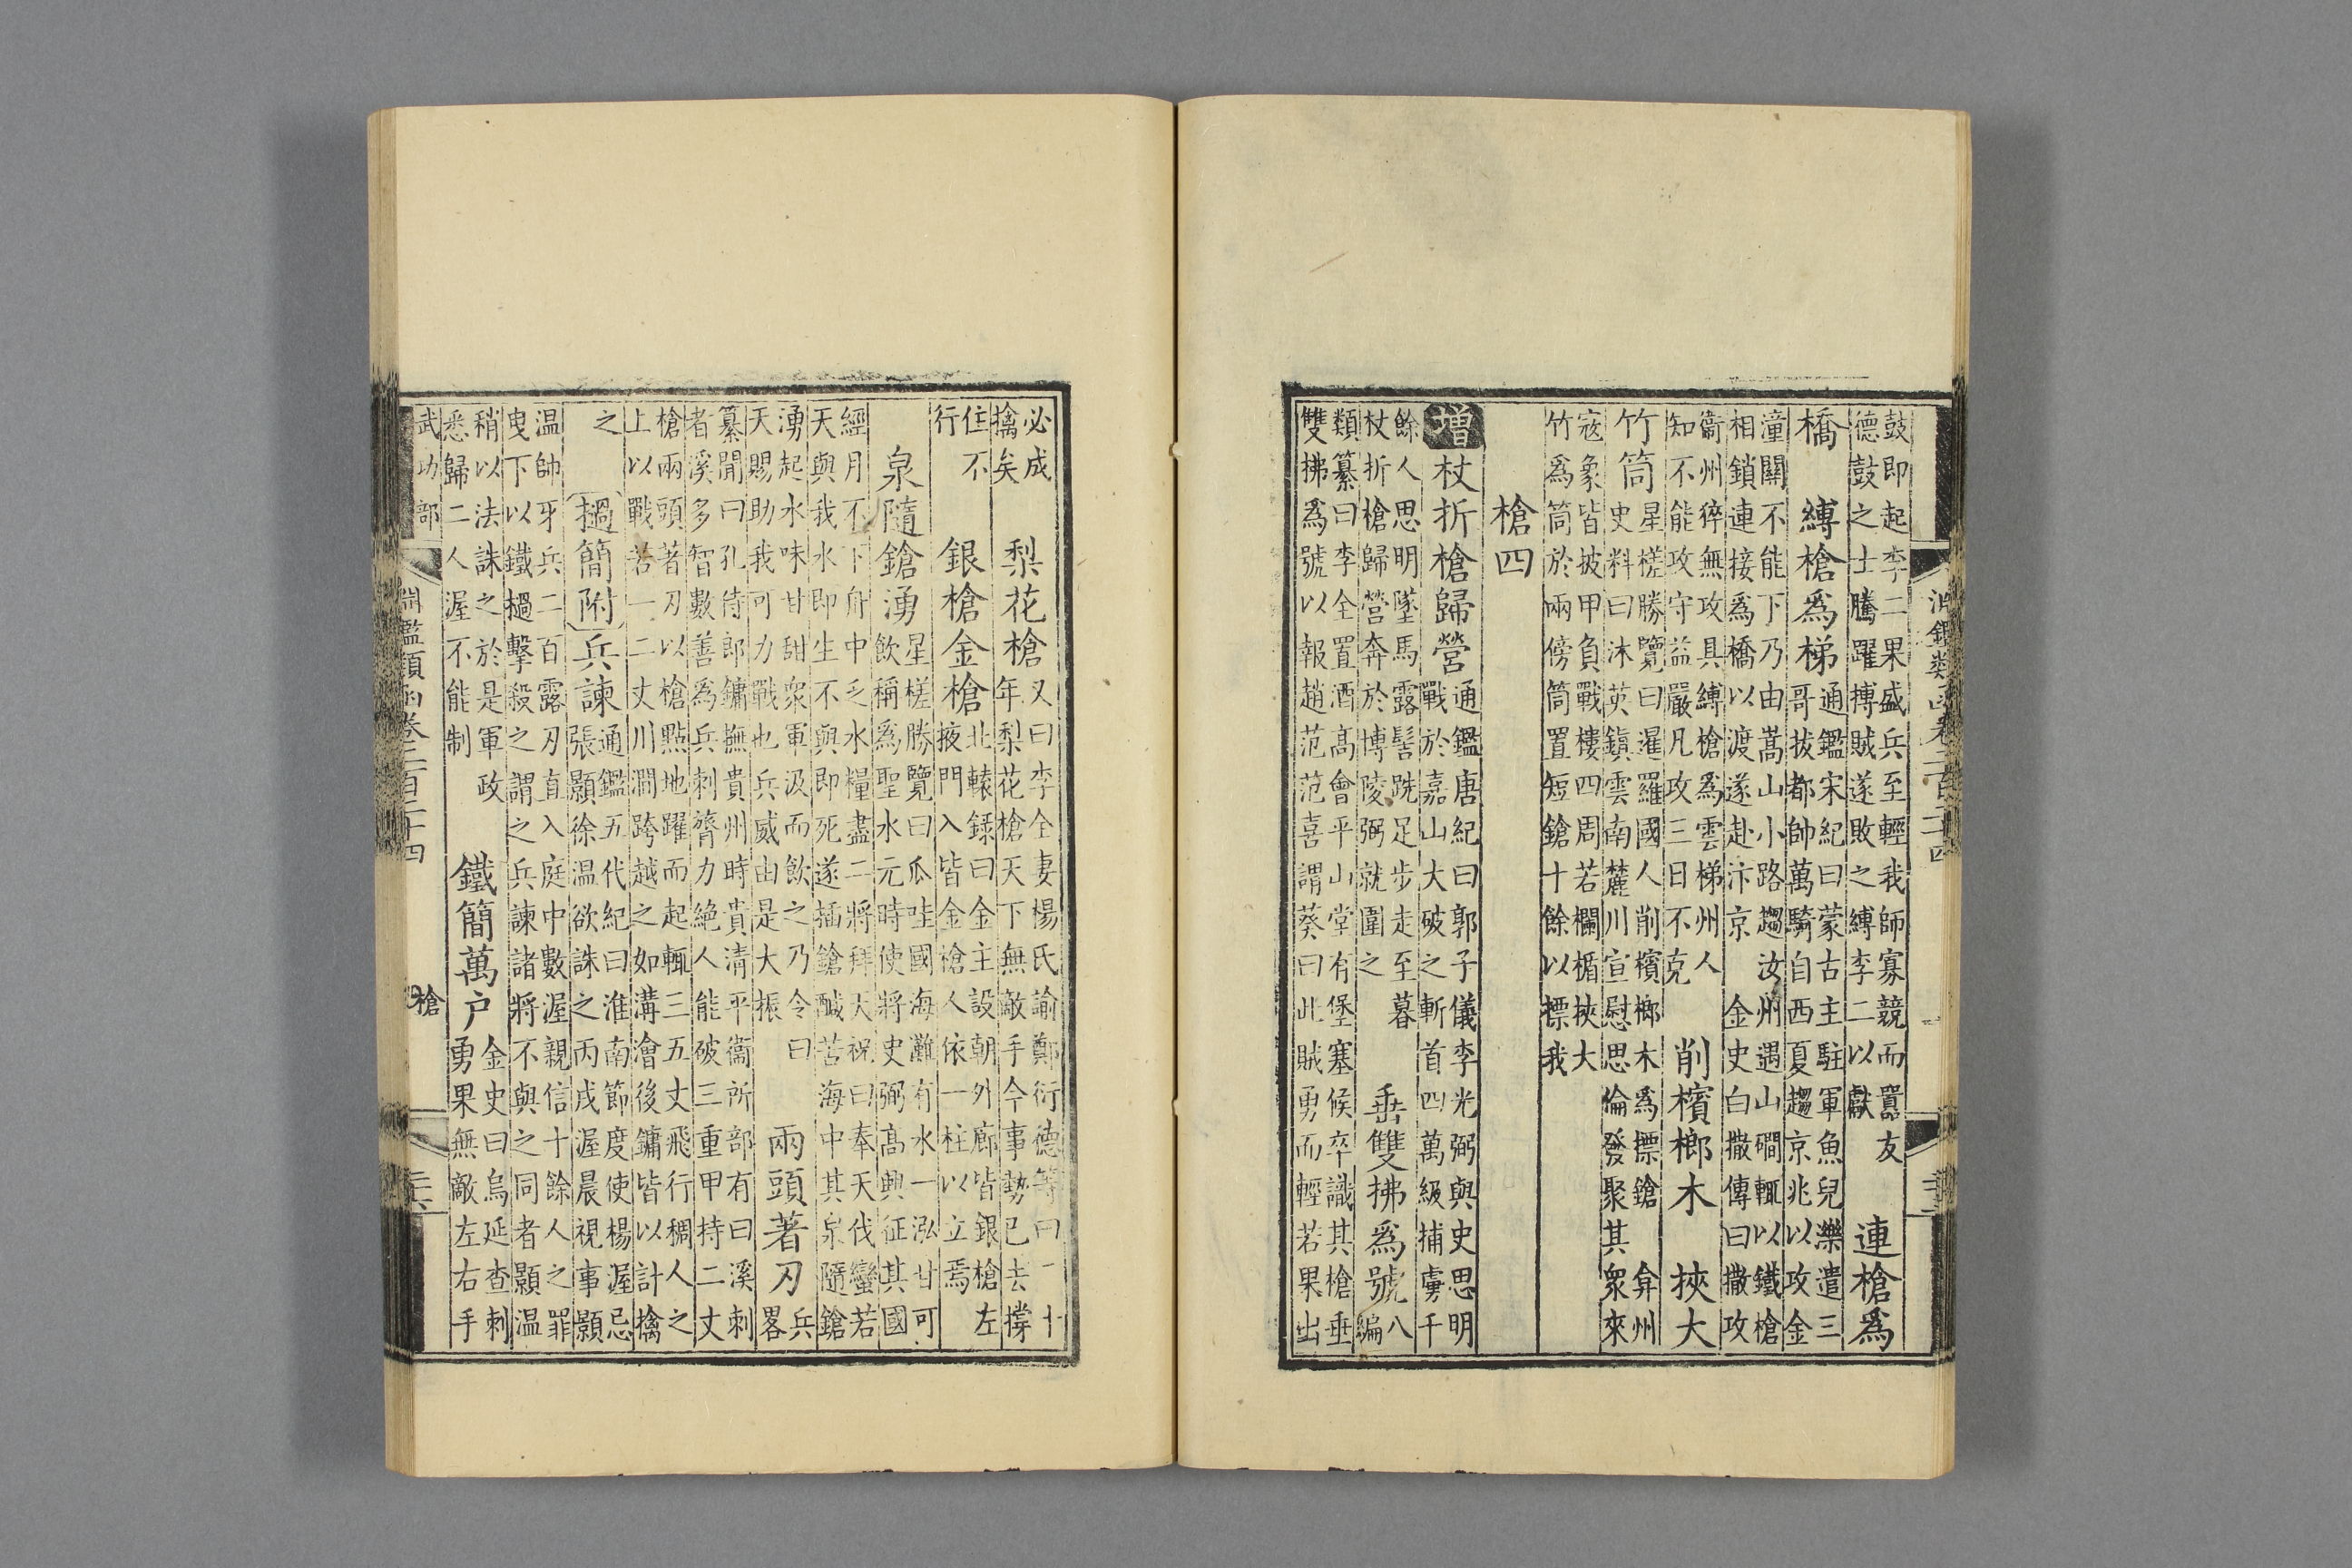 鼓即起李二果盛兵至輕我師寡競而嚻友
德鼓之士騰躍搏賊遂敗之縛李二以獻
連槍爲
橋　縛槍爲梯
通鑑宋紀曰蒙古主駐軍魚兒濼遣三
哥拔都帥萬騎自西夏趨京兆以攻金
潼關不能下乃由嵩山小路趨汝州遇山磵輒以鐵槍
相鎖連接爲橋以渡遂赴汴京　金史白撒傳曰撒攻
衞州猝無攻具縛槍爲雲梯州人
知不能攻守益嚴凡攻三日不克
削檳榔木　挾大
竹筒
星槎勝覽曰暹羅國人削檳榔木爲摽鎗　弇州
史料曰沐英鎮雲南麓川宣慰思倫發聚其衆來
寇象皆披甲負戰樓四周若欄楯挾大
竹爲筒於兩傍筒置短鎗十餘以摽我
槍四
增杖折槍歸營
通鑑唐紀曰郭子儀李光弼與史思明
戰於嘉山大破之斬首四萬級捕虜千
餘人思明墜馬露髻跣足步走至暮
杖折槍歸營奔於博陵弼就圍之
垂雙拂爲號
八
編
類纂曰李全置酒高會平山堂有堡塞候卒識其槍垂
雙拂爲號以報趙范范喜謂葵曰此賊勇而輕若果出
必成
擒矣
梨花槍
又曰李全妻楊氏諭鄭衍德等曰二十
年梨花槍天下無敵手今事勢已去撐
住不
行
銀槍金槍
北轅録曰金主設朝外廊皆銀槍左
掖門入皆金槍人依一柱以立焉
泉隨鎗湧
星槎勝覽曰瓜哇國海灘有水一泓甘可
飲稱爲聖水元時使將史弼高興征其國
經月不下舟中乏水糧盡二將拜天祝曰奉天伐蠻若
天與我水即生不與即死遂插鎗鹹苦海中其泉隨鎗
湧起水味甘甜衆軍汲而飲之乃令曰
天賜助我可力戰也兵威由是大振
兩頭著刃
兵
畧
纂聞曰孔侍郎鏞撫貴州時貴清平衞所部有曰溪刺
者溪多智數善爲兵刺膂力絶人能破三重甲持二丈
槍兩頭著刃以槍點地躍而起輒三五丈飛行稠人之
上以戰苦一二丈川澗跨越之如溝澮後鏞皆以計擒
之
檛簡附
兵諫
通鑑五代紀曰淮南節度使楊渥忌
張顥徐温欲誅之丙戌渥晨視事顥
温帥牙兵二百露刃直入庭中數渥親信十餘人之罪
曳下以鐵檛擊殺之謂之兵諫諸將不與之同者顥温
稍以法誅之於是軍政
悉歸二人渥不能制
鐵簡萬户
金史曰烏延查刺
勇果無敵左右手
武功部
淵鑑類函卷二百二十四
槍